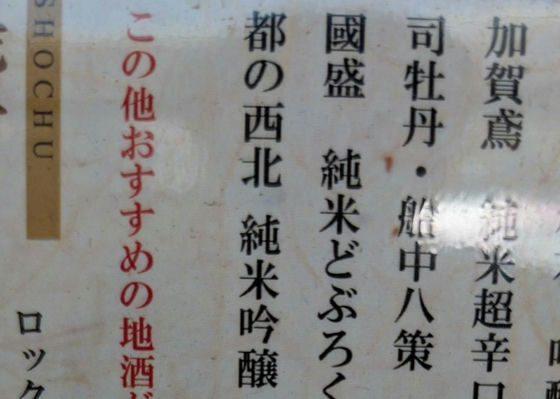 加賀鳶 純米超辛口
司牡丹・船中八策
國盛 純米どぶろく
都の西北 純米吟醸
この他おすすめの地酒が
SHOCHU
ロック